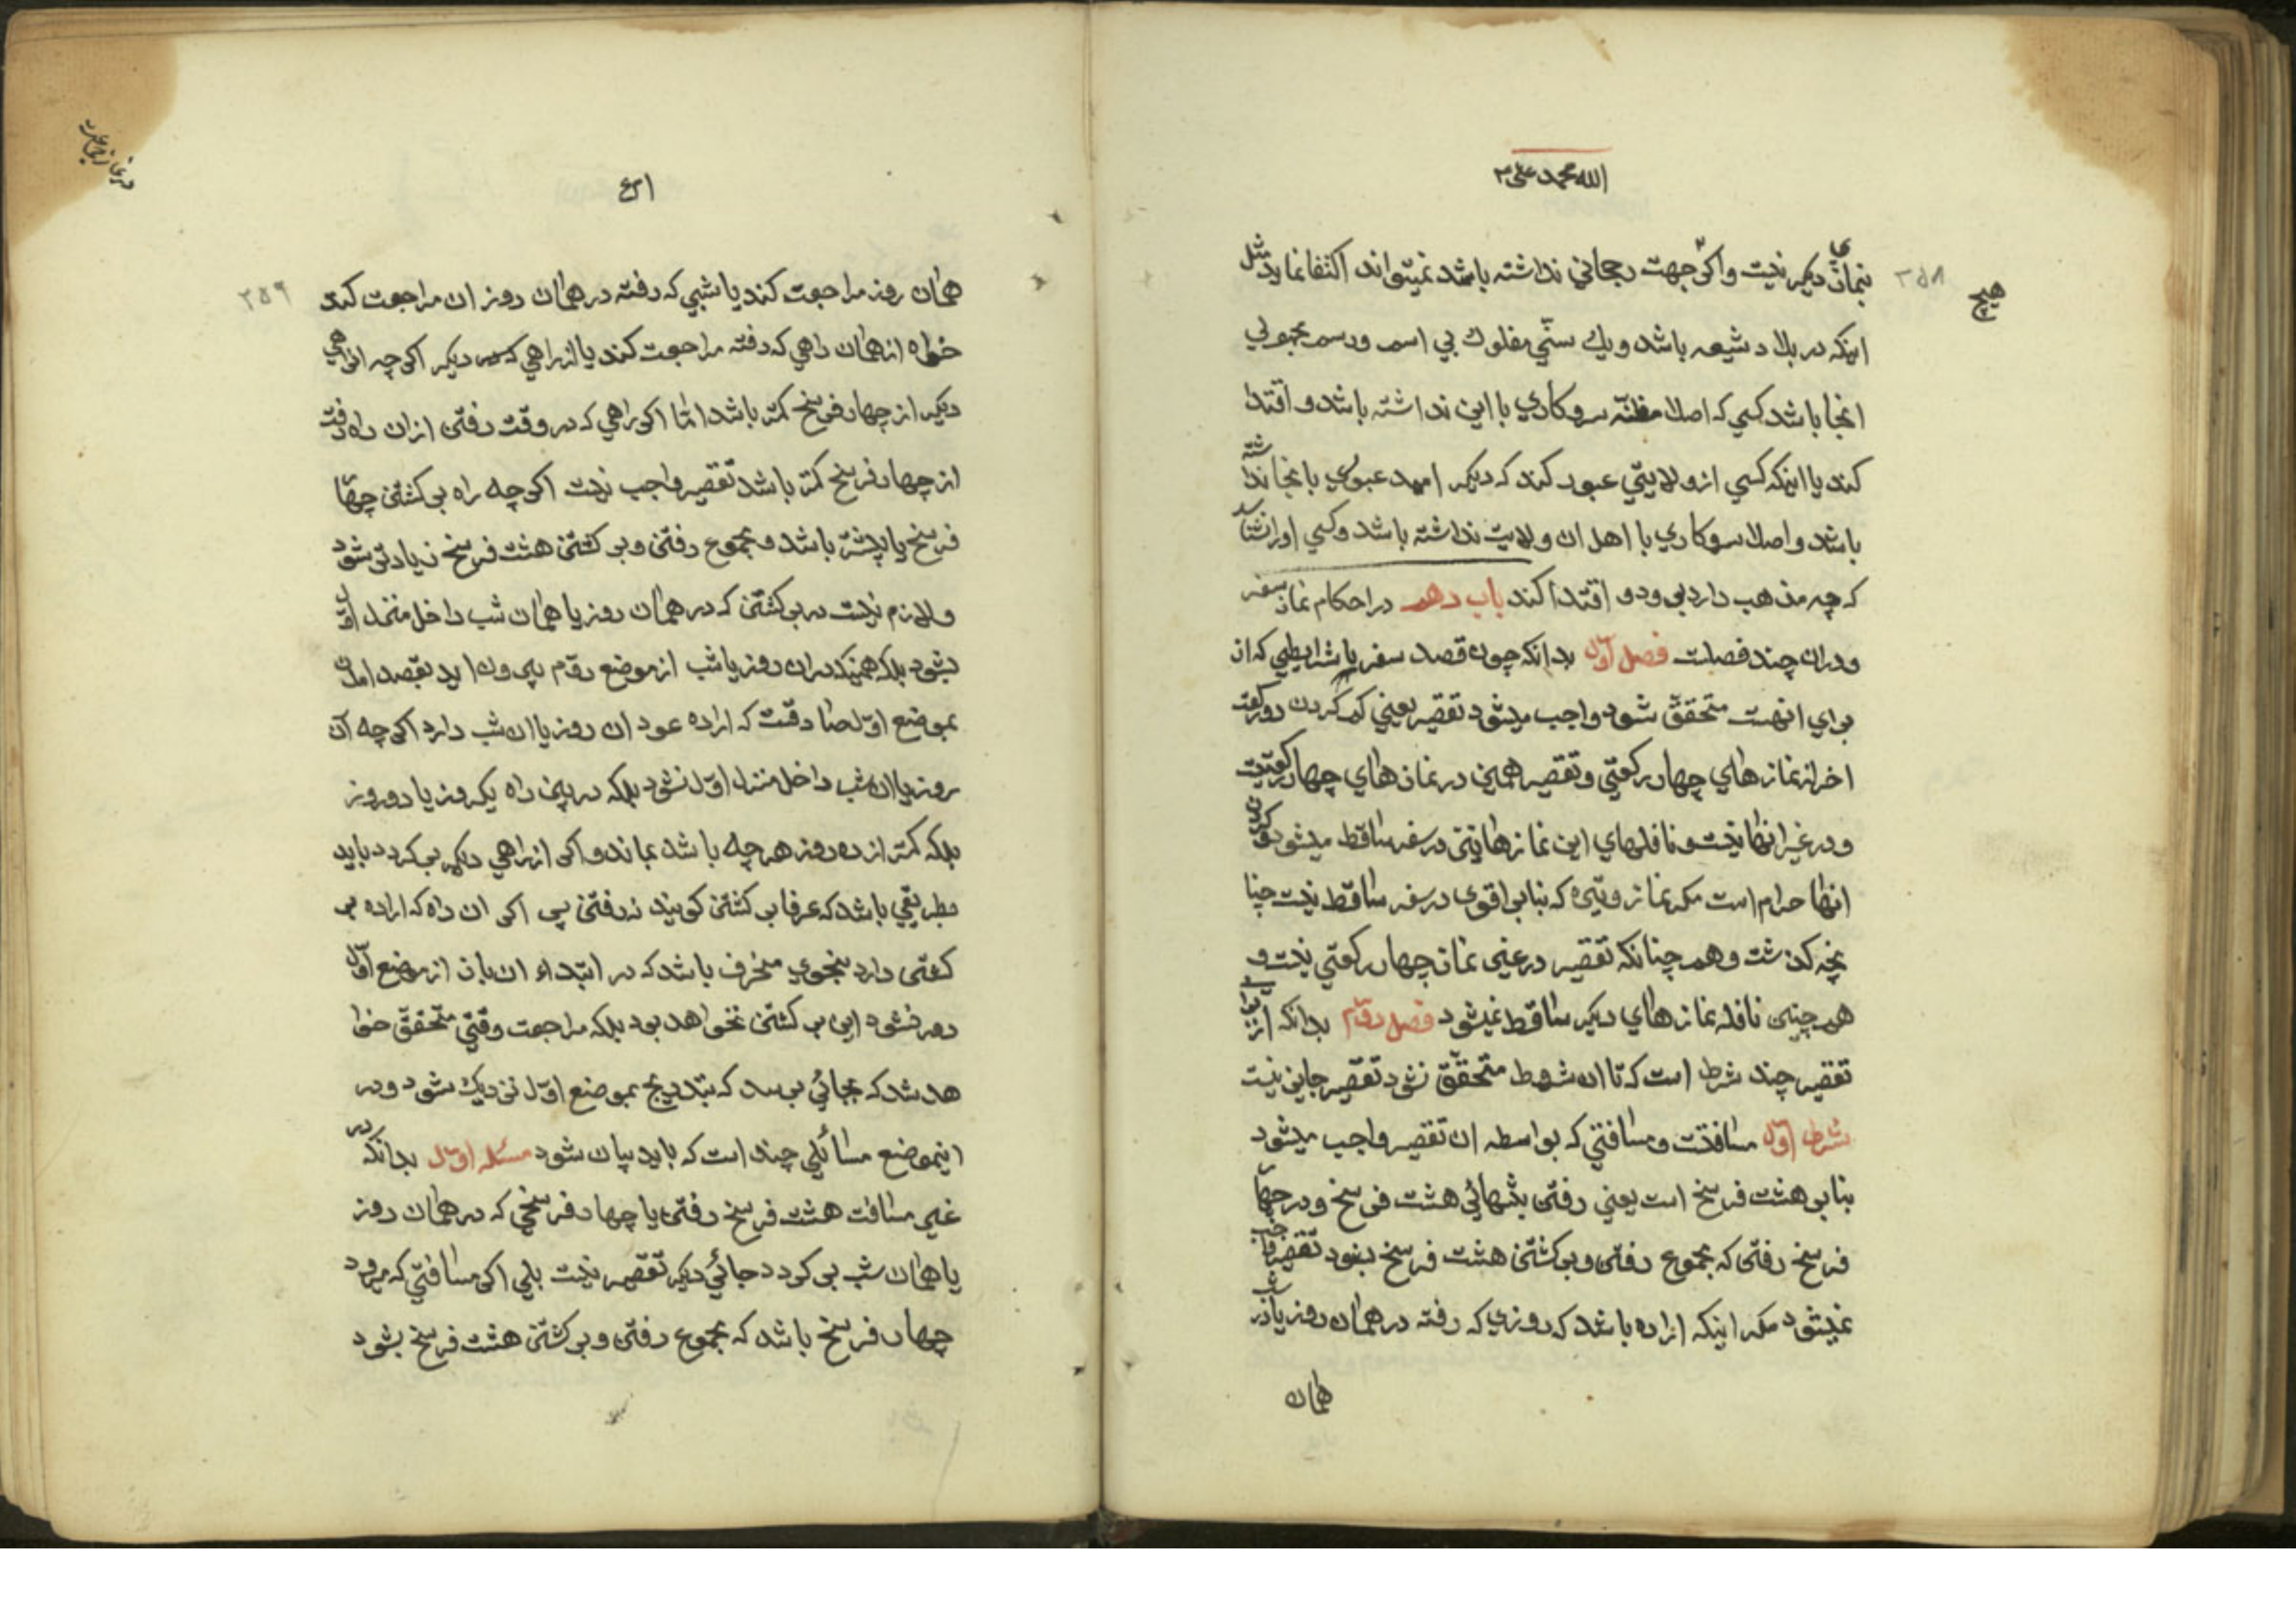 الله محمد علی
۳۵۸
هیچ
بنمازی دیگر نیست و اگر جهت رجحانی نداشته باشد نمیتواند اکتفا نماید مثل
اینکه در بلاد شیعه باشد و یك سنّی مفلوك بی اسم و رسم مجهولی
انجا باشد کسی که اصلا مظنّه سروکاری با این نداشته باشد و اقتدا
کند یا اینکه کسی از ولایتی عبور کند که دیگر امید عبوری بانجا نداشته
باشد و اصلا سروکاری با اهل ان ولایت نداشته باشد و کسی او را نشناسد
که چه مذهب دارد برود و اقتدا کند باب دهم در احکام نماز سفر
و دران چند فصلست فصل اوّل بدانکه چون قصد سفر با شرایطی که از
برای انهست متحقّق شود واجب میشود تقصیر یعنی کم کردن دو رکعت
اخر از نمازهای چهار رکعتی و تقصیر همین در نمازهای چهار رکعتیست
و در غیر انها نیست و نافلهای این نمازها نیز در سفر ساقط میشود و کردن
انها حرام است مگر نماز وتیره که بنابر اقوی در سفر ساقط نیست چنا
نچه گذشت و هم چنانکه تقصیر در غیر نماز چهار رکعتی نیست و
هم چنین نافله نمازهای دیگر ساقط نمیشود فصل دوّم بدانکه از برای
تقصیر چند شرط است که تا ان شروط متحقّق نشود تقصیر جایز نیست
شرط اوّل مسافتست و مسافتی که بواسطه ان تقصیر واجب میشود
بنابر هشت فرسخ است یعنی رفتن بتنهائی هشت فرسخ و در چهار
فرسخ رفتن که مجموع رفتن و برگشتن هشت فرسخ بشود تقصیر واجب
نمیشود مگر اینکه اراده باشد که روزی که رفته در همان روز یا در شب
همان
۳۵۹
همان روز مراجعت کند یا شبی که رفته در همان روز ان مراجعت کند
خواه از همان راهی که رفته مراجعت کند یا از راهی دیگر اگر چه ان راهی
دیگر از چهار فرسخ کمتر باشد امّا اگر راهی که در وقت رفتن از ان راه رفت
از چهار فرسخ کمتر باشد تقصیر واجب نیست اگر چه راه برگشتن چهار
فرسخ یا بیشتر باشد و مجموع رفتن و برگشتن هشت فرسخ زیادتر شود
و لازم نیست در برگشتن که در همان روز یا همان شب داخل منزل اوّل
بشود بلکه همینکه دران روز یا شب از موضع دوّم بیرون اید بقصد امدن
بموضع اوّل صادقست که اراده عود ان روز یا ان شب دارد اگر چه آن
روز یا ان شب داخل منزل اوّل نشود بلکه در بین راه یکروز یا دو روز
بلکه کمتر از ده روز هر چه باشد بماند و اگر از راهی دیگر برگردد باید
بطریقی باشد که عرفا برگشتن گویند نه رفتن پس اگر ان راه که اراده بر
گشتن دارد بنحوی منحرف باشد که در ابتداء ان باز از موضع اوّل
دور شود این برگشتن نخواهد بود بلکه مراجعت وقتی متحقّق خوا
هد شد که بجائی برسد که بتدریج بموضع اوّل نزدیك شود و در
اینموضع مسائلی چند است که باید بیان شود مسئله اوّل بدانکه در
غیر مسافت هشت فرسخ رفتن یا چهار فرسخی که در همان روز
یا همان شب برگردد جائی دیگر تقصیر نیست بلی اگر مسافتی که میرود
چهار فرسخ باشد که مجموع رفتن و برگشتن هشت فرسخ بشود